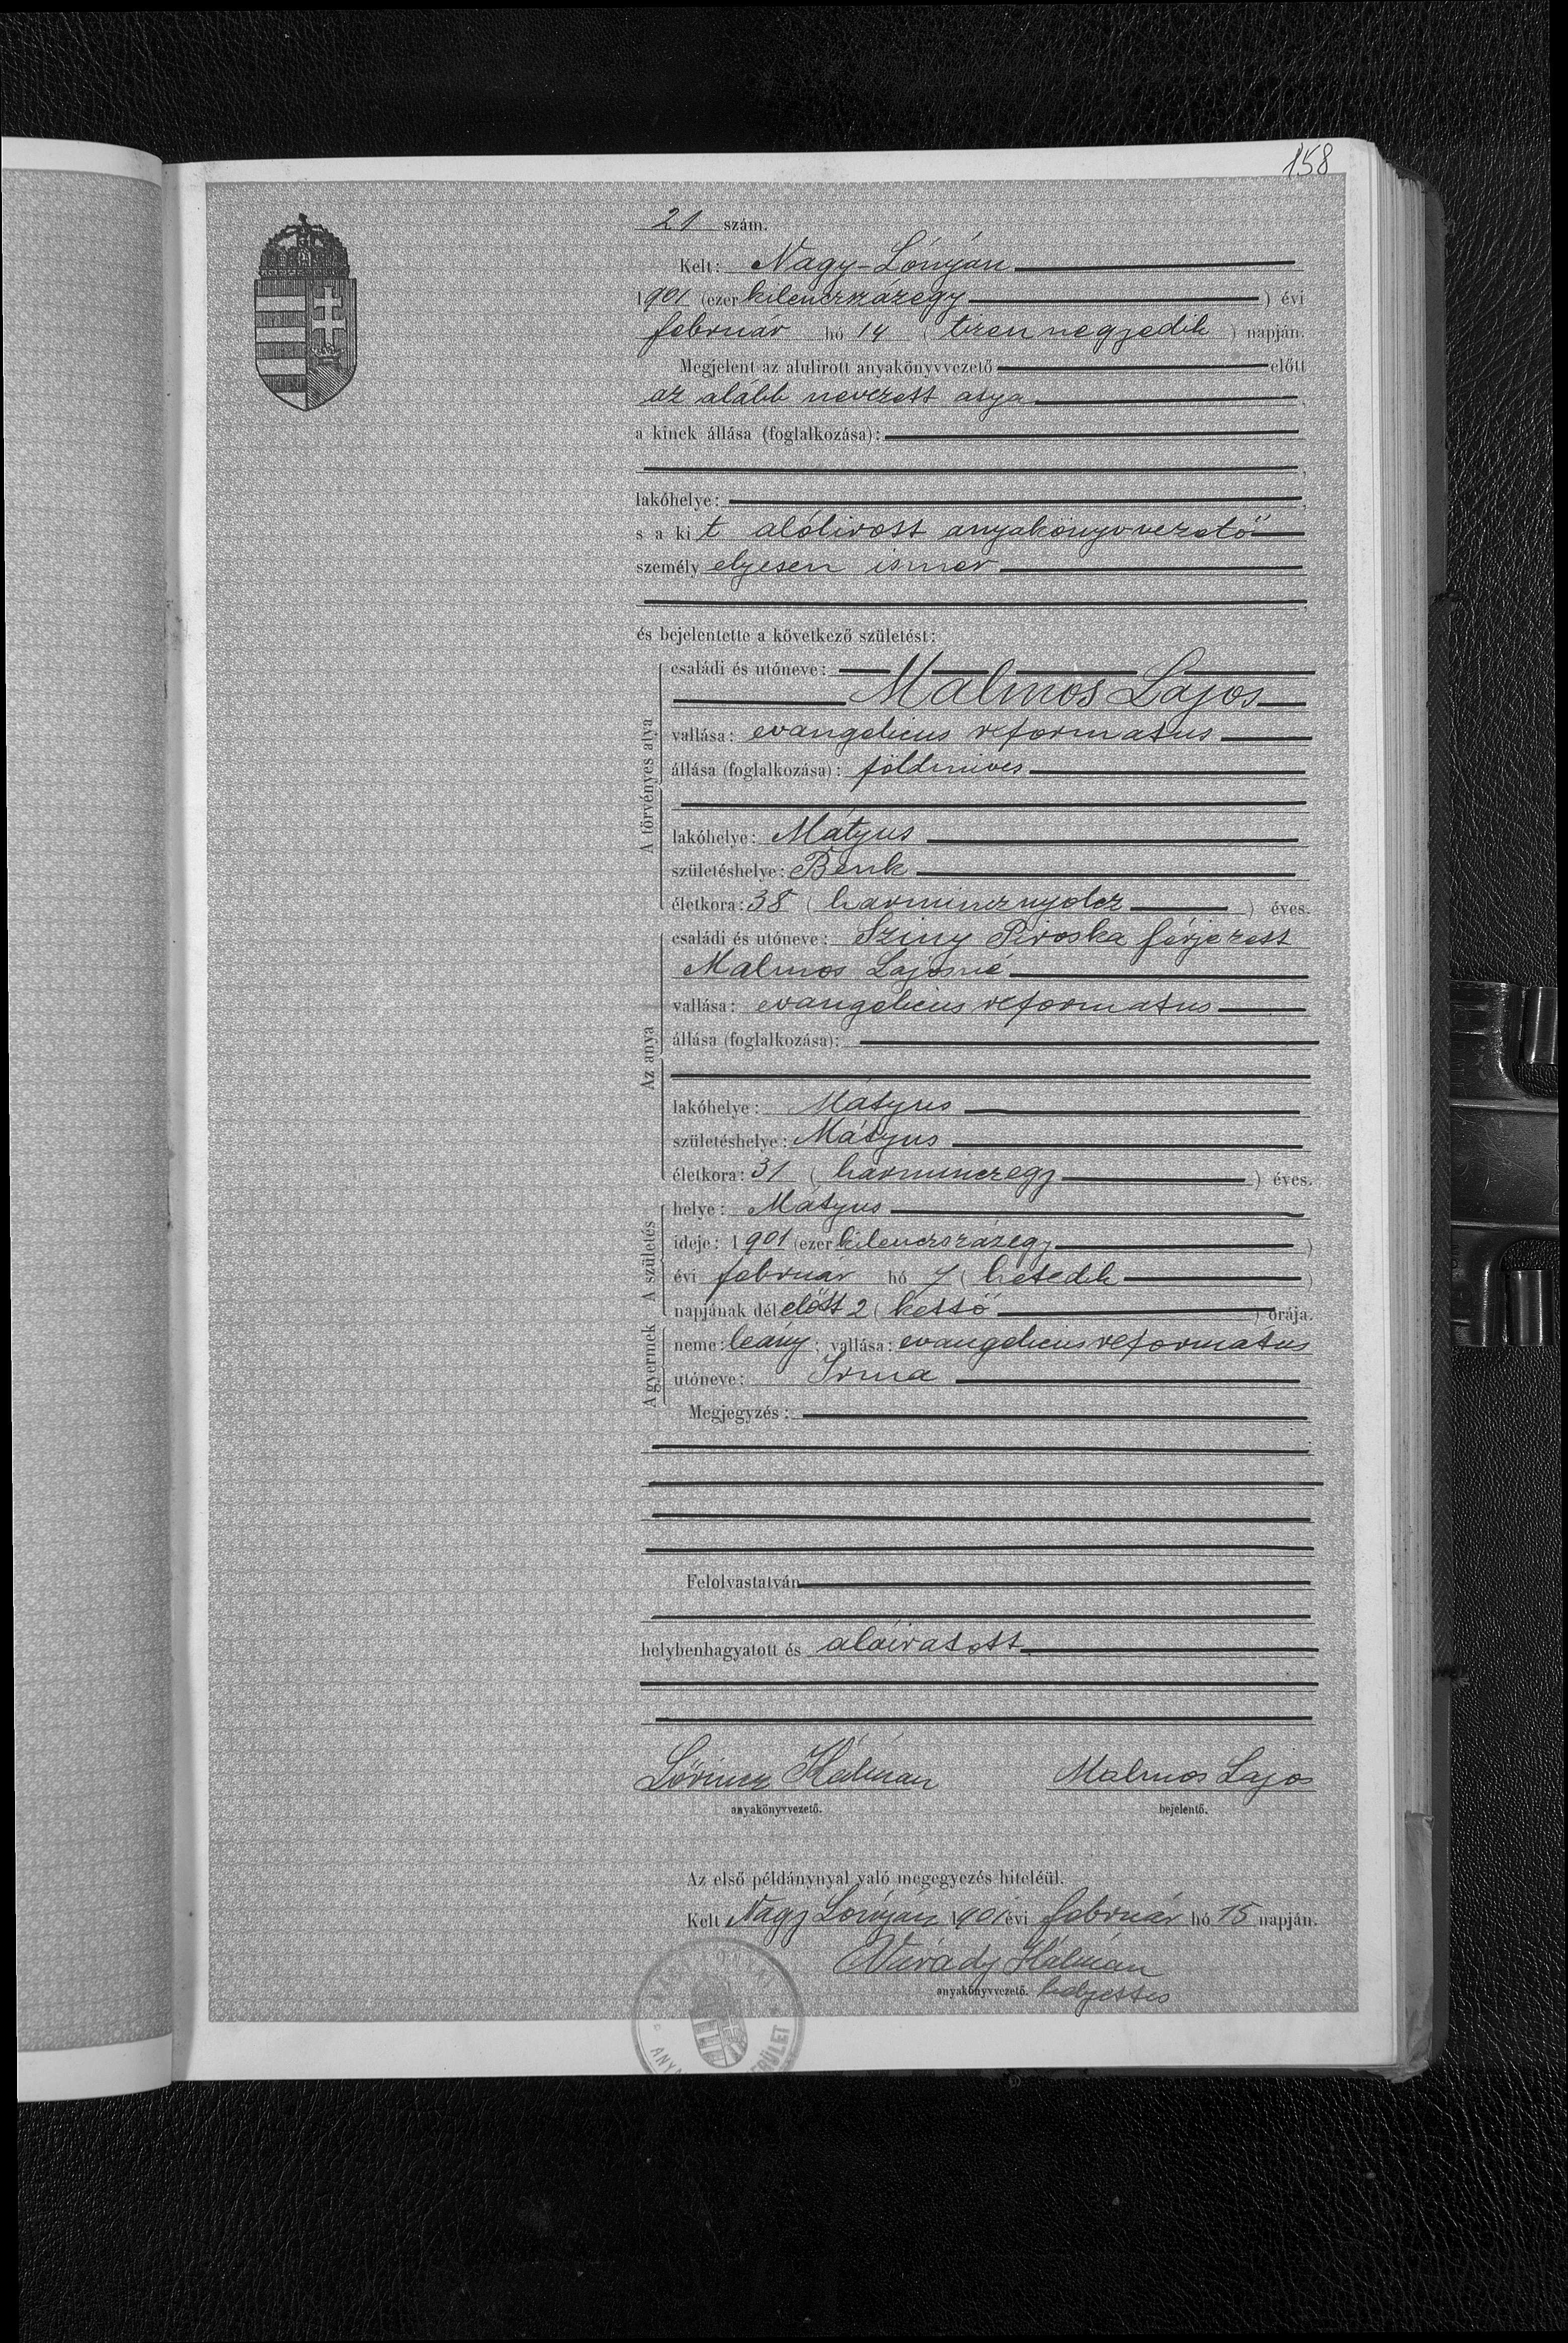 158
21 szám.
Kelt: Nagy-Lónyán
1901 (ezer kilenczszázegy) évi
február hó 14 (tizennegyedik) napján.
Megjelent az alulirott anyakönyvvezető előtt
az alább nevezett atya,
a kinek állása (foglalkozása):
lakóhelye:
s a kit alólirott anyakönyvvezető
személyesen ismer
és bejelentette a következő születést:
A törvényes atya
családi és utóneve:
Malmos Lajos
vallása: evangelicus reformatus
állása (foglalkozása): földmives
lakóhelye: Mátyus
születéshelye: Benk
életkora: 38 (harmincznyolcz) éves.
Az anya
családi és utóneve: Sziny Piroska férjezett
Malmos Lajosné
vallása: evangelicus reformatus
állása (foglalkozása):
lakóhelye: Mátyus
születéshelye: Mátyus
életkora: 31 (harminczegy) éves.
A születés
helye: Mátyus
ideje: 1901 (ezer kilenczszázegy)
évi február hó 7 (hetedik)
napjának délelőtt 2 (kettő) órája.
A gyermek
neme: leány; vallása: evangelicus református
utóneve: Irma
Megjegyzés:
Felolvastatván
helybenhagyatott és aláiratott
Lőrincz Kálmán Malmos Lajos
anyakönyvvezető. bejelentő.
Az első példánynyal való megegyezés hiteléül.
Kelt Nagy Lónyán 1901 évi február hó 15 napján.
Várady Kálmán
anyakönyvvezető. helyettes